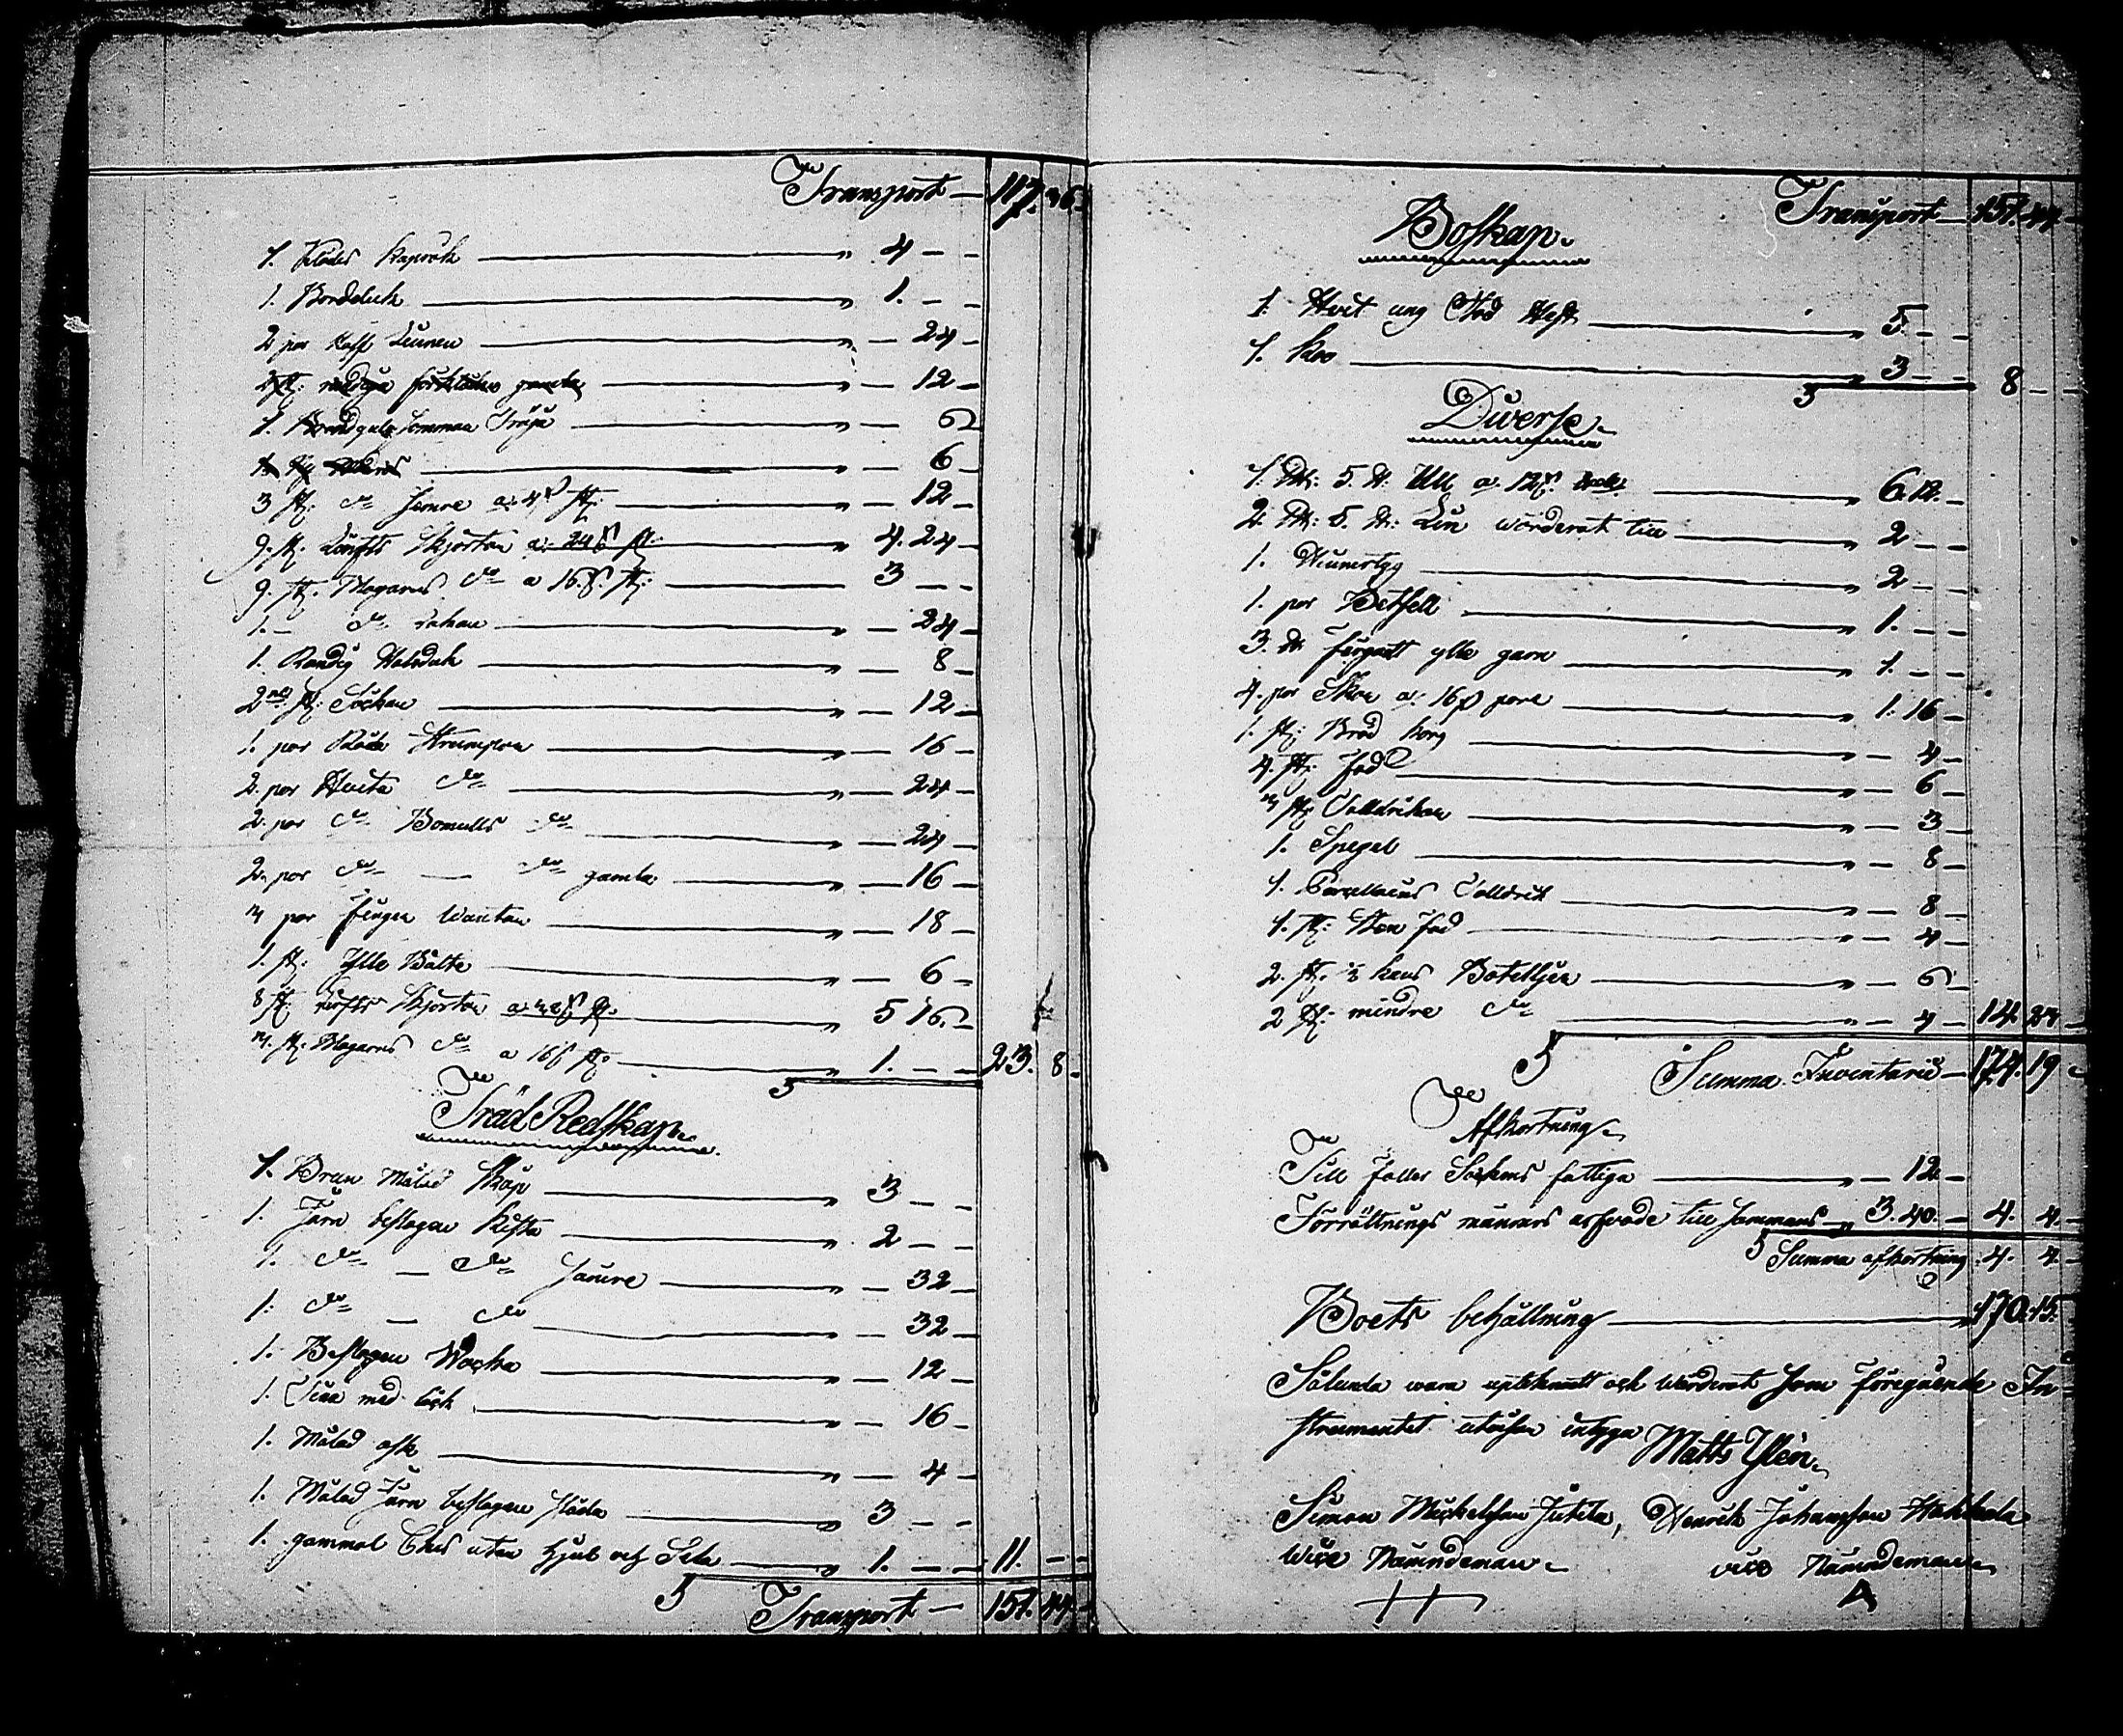 Transport — 117. 36.
1. Klädes Kaprock — " 4 – –
1. Bordduk — " 1. – –
2 par — " – 24 –
st: förkläden gamla — " – 12 –
1. Tröja — " – 6
— " – 6 –
3 st: do Semre a: 4 s st: — " – 12 –
9. st. Lärfts Skjortor a: 24 s st. — 4. 24 –
9. st. Blagarns do a 16. s. st: — 3 – –
1. – do — " – 24 –
1. Randig Halsduk — " – 8 –
2ne st: Säckar — " – 12 –
1. par Röda Strumpor — " – 16 –
2. par Hvita do — " – 24 –
2. par do Bomulls do — " – 24 –
2. par do — do gamla — " – 16 –
3 par Finger Wantar — " – 18 –
1. st: Ylle Bälte — " – 6 –
8 st. Lärfts Skjortor a: 32 s st. — " 5 16.
3. st: Blagarns do a 16 s st: — " 1. – – 23. 8.
Träd Redskap.
1. Brun Målad Skåp — " 3 – –
1. Järn beslagen Kista — " 2 – –
1. do — do Sämre — " – 32 –
1. do — do — " – 32 –
1. Beslagen Wacka — " – 12 –
1. Tina med låck — " – 16 –
1. Målad ask — " – 4 –
1. Målad Järn beslagen släda — " 3 – –
1. gammal Ches utan hjul och Sela — " 1. – – 11. – –
Transport — 151. 44. –
Transport — 151. 44 –
Boskap.
1. Hvit ung Häst — " 5 – –
1. Koo — " 3 – – 8 – –
Diverse.
1. L℔: 5. ℔: Ull a. 12 s. — " 6. 12. –
2. L℔: 5. ℔: Lin wärderat till — " 2 – –
1. — " 2 – –
1. par Betsell — " 1. – –
3. ℔ färgadt ylle garn — " 1. – –
4. par Skor a: 16 s paret — " 1: 16 –
1. st: Bröd korg — " – 4 –
4. st: Fad — " – 6 –
3 st: Talldrikar — " – 3 –
1. Spegel — " – 8 –
1. Porcellains Talldrik — " – 8 –
1. st: Sten Fad — " – 4 –
2. st. ½ kans Bötelljer — " – 6 –
2 st: mindre do — " – 4 – 14. 23 –
Summa Inventarii — 174. 19 –
Afkortning.
Till Socknens fattiga — " – 12 –
Förrättnings männers arfvode till sammans — " 3. 40. – 4. 4. –
Summa afkortning 4. 4. –
Boets behållning — 170. 15.
Sålunda vara uptecknadt och wärderat som föregående In-
strumentet utvisar intyga
Matts Ylen.
Simon Mickelsson Jutila, Henrick Johansson Hakkola
vice Nämndeman. vice Nämndeman